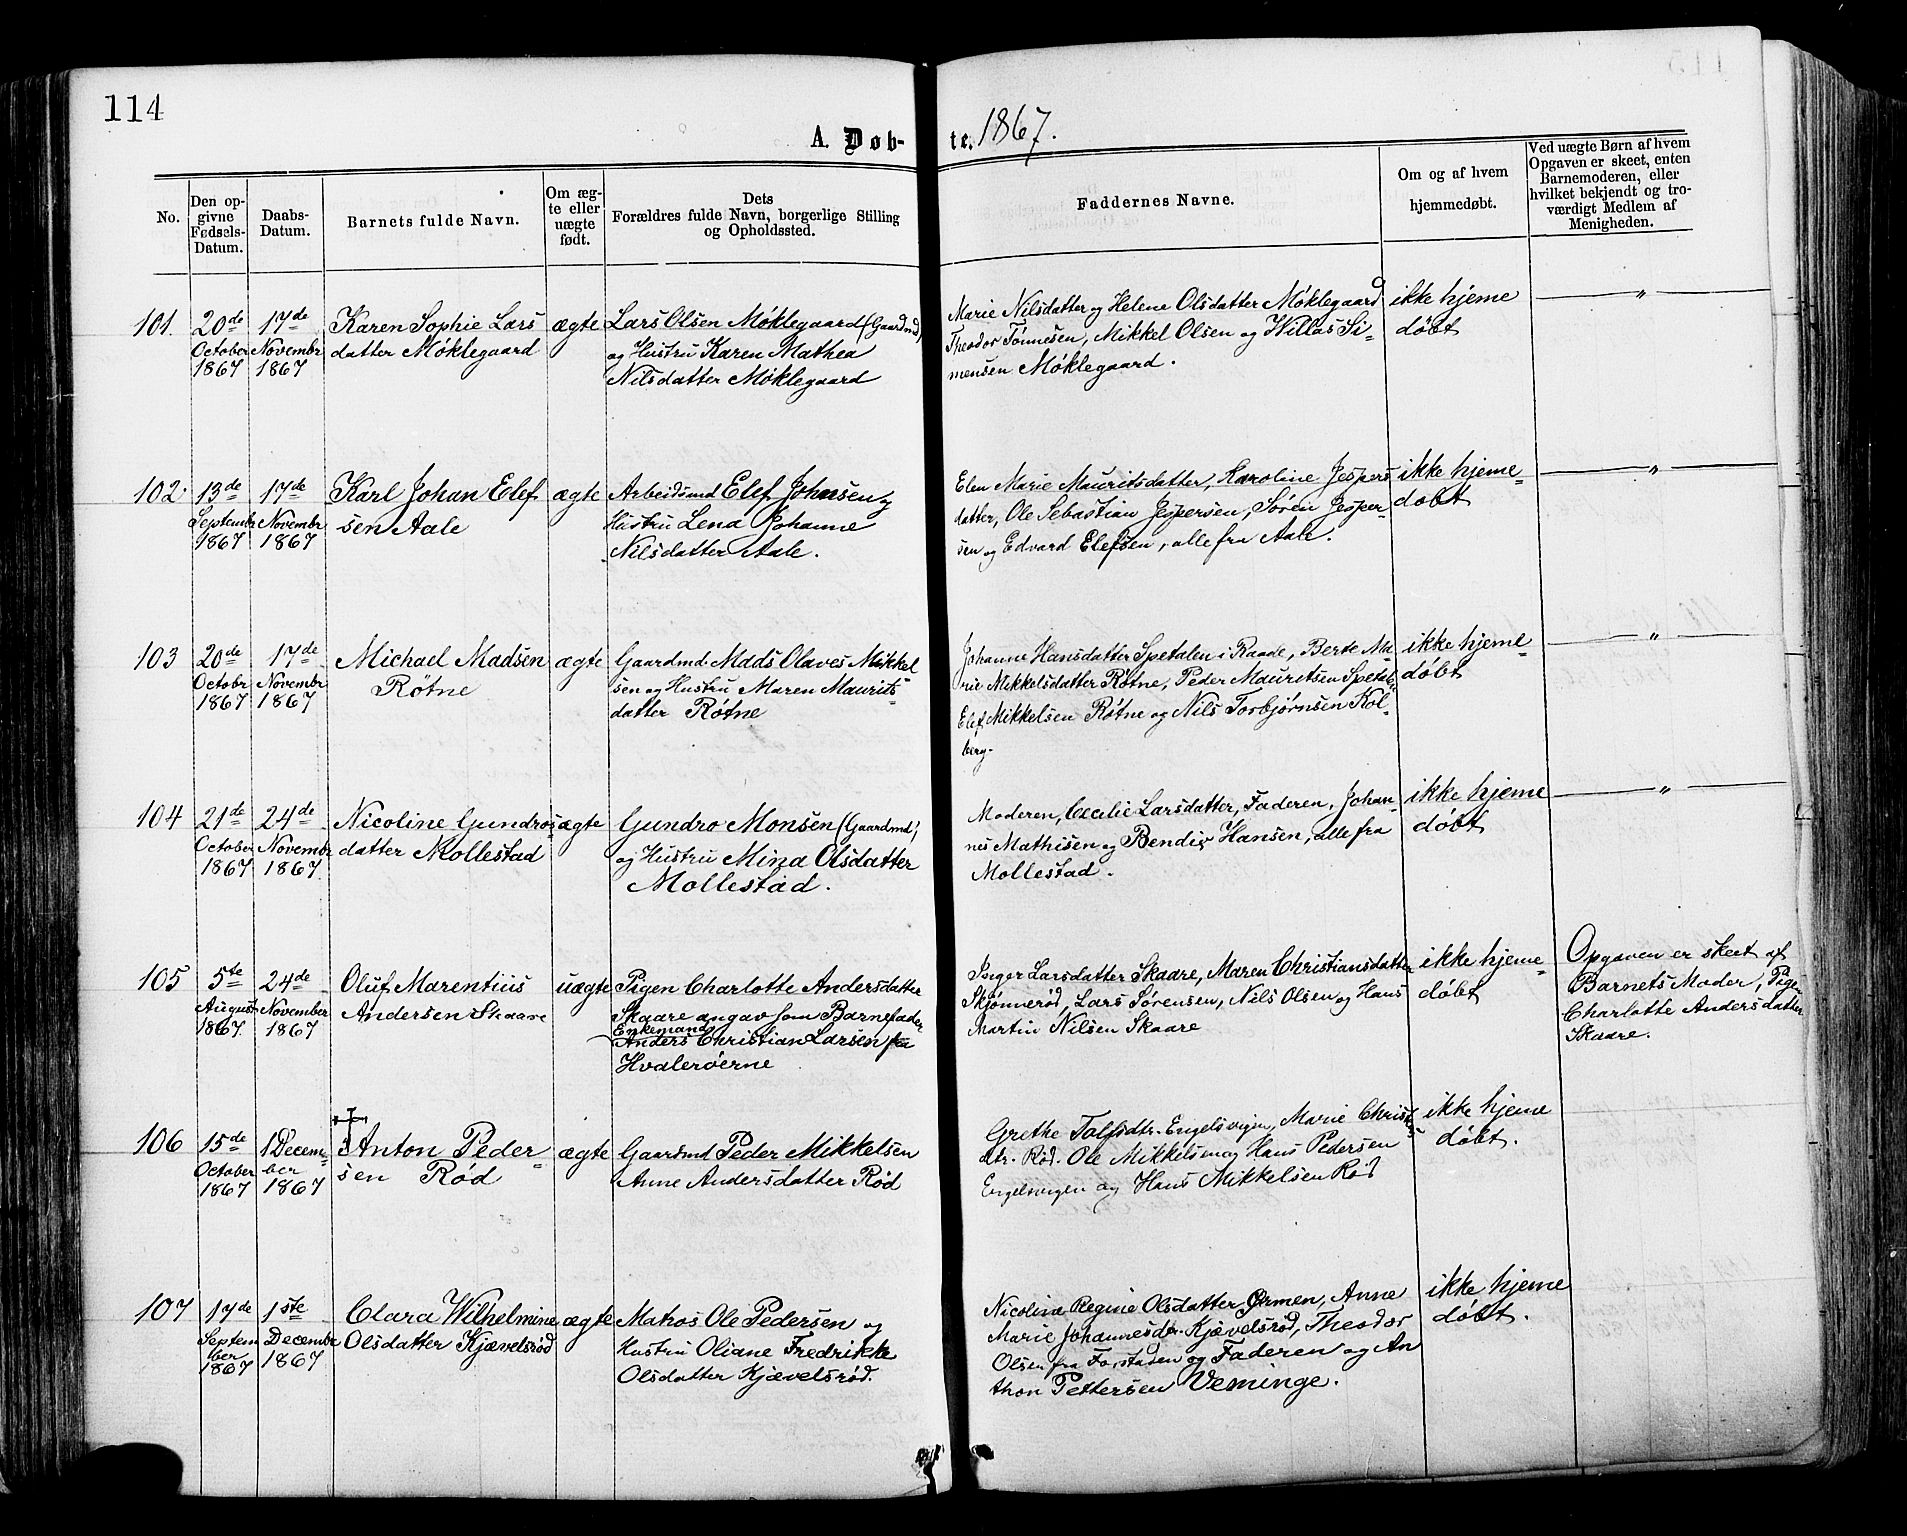 114
A. Døb-
te. 1867.
No.
Den op-
givne
Fødsels-
Datum.
Daabs-
Datum.
Barnets fulde Navn.
Om æg-
te eller
uægte
født.
Dets
Forældres fulde Navn, borgerlige Stilling
og Opholdssted.
Faddernes Navne.
Om og af hvem
hjemmedøbt.
Ved uægte Børn af hvem
Opgaven er skeet, enten
Barnemoderen, eller
hvilket bekjendt og tro-
værdigt Medlem af
Menigheden.
101.
20de
October
1867
17de
Novembr
1867
Karen Sophie Lars
datter Møklegaard
ægte
Lars Olsen Møklegaard (Gaardmd)
og Hustru Karen Mathea
Nilsdatter Møklegaard
Marie Nilsdatter og Helene Olsdatter Møklegaard
Theodor Tønnesen, Mikkel Olsen og Willas Si-
mensen Møklegaard.
ikke hjeme
døbt
"
102
13de
Septembr
1867
17de
Novembr
1867
Karl Johan Elef
sen Aale
ægte
Arbeidsmd Elef Johnsen og
Hustru Lena Johanne
Nilsdatter Aale.
Elen Marie Mauritsdatter, Karoline Jespers
datter, Ole Sebastian Jespersen, Søren Jesper-
sen og Edvard Elefsen, alle fra Aale.
ikke hjeme-
døbt
"
103
20de
Octobr
1867
17de
Novembr
1867
Michael Madsen
Røtne
ægte
Gaardmd. Mads Olaves Mikkel
sen og Hustru Maren Maurits-
datter Røtne
Johanne Hansdatter Spetalen i Raade, Berte Ma-
rie Mikkelsdatter Røtne, Peder Mauritsen Spetalen
Elef Mikkelsen Røtne og Nils Torbjørnsen Kol-
berg.
ikke hjeme-
døbt
"
104
21de
October
1867
24de
Novembr
1867.
Nicoline Gundros-
datter Mollestad
ægte
Gundro Monsen (Gaardmd)
og Hustru Mina Olsdatter
Mollestad.
Moderen, Cecilie Larsdatter, Faderen, Johan-
nes Mathisen og Bendix Hansen, alle fra
Mollestad.
ikke hjeme
døbt
"
105
5te
August
1867.
24de
November
1867
Oluf Marentius
Andersen Skaare
uægte
Pigen Charlotte Andersdatter
Skaare angav som Barnefader
Enkemand
Anders Christian Larsen fra
Hvalerøerne
Inger Larsdatter Skaare, Maren Christiansdatter
Skjønnerød, Lars Sørensen, Nils Olsen og Hans
Martin Nilsen Skaare
ikke hjeme-
døbt
Opgaven er skeet af
Barnets Moder, Pigen
Charlotte Andersdatter
Skaare.
106
15de
October
1867
1 Decem-
ber
1867
Anton Peder-
sen Rød
ægte
Gaardmd Peder Mikkelsen
Anne Andersdatter Rød
Grethe Tolfsdtr. Engelsvigen, Marie Christs
dtr. Rød. Ole Mikkelsen og Hans Pedersen
Engelsvigen og Hans Mikkelsen Rød
ikke hjeme
døbt.
107
17de
Septem
ber
1867
1ste
Decembr
1867
Clara Wilhelmine
Olsdatter Kjævelsrød
ægte
Matros Ole Pedersen og
Hustru Oliane Fredrikke
Olsdatter Kjævelsrød.
Nicoline Regine Olsdatter Ørmen, Anne
Marie Johannesdr. Kjævelsrød, Theodor
Olsen fra Forstaden og Faderen og An
thon Pettersen Veminge.
ikke hjeme
døbt.